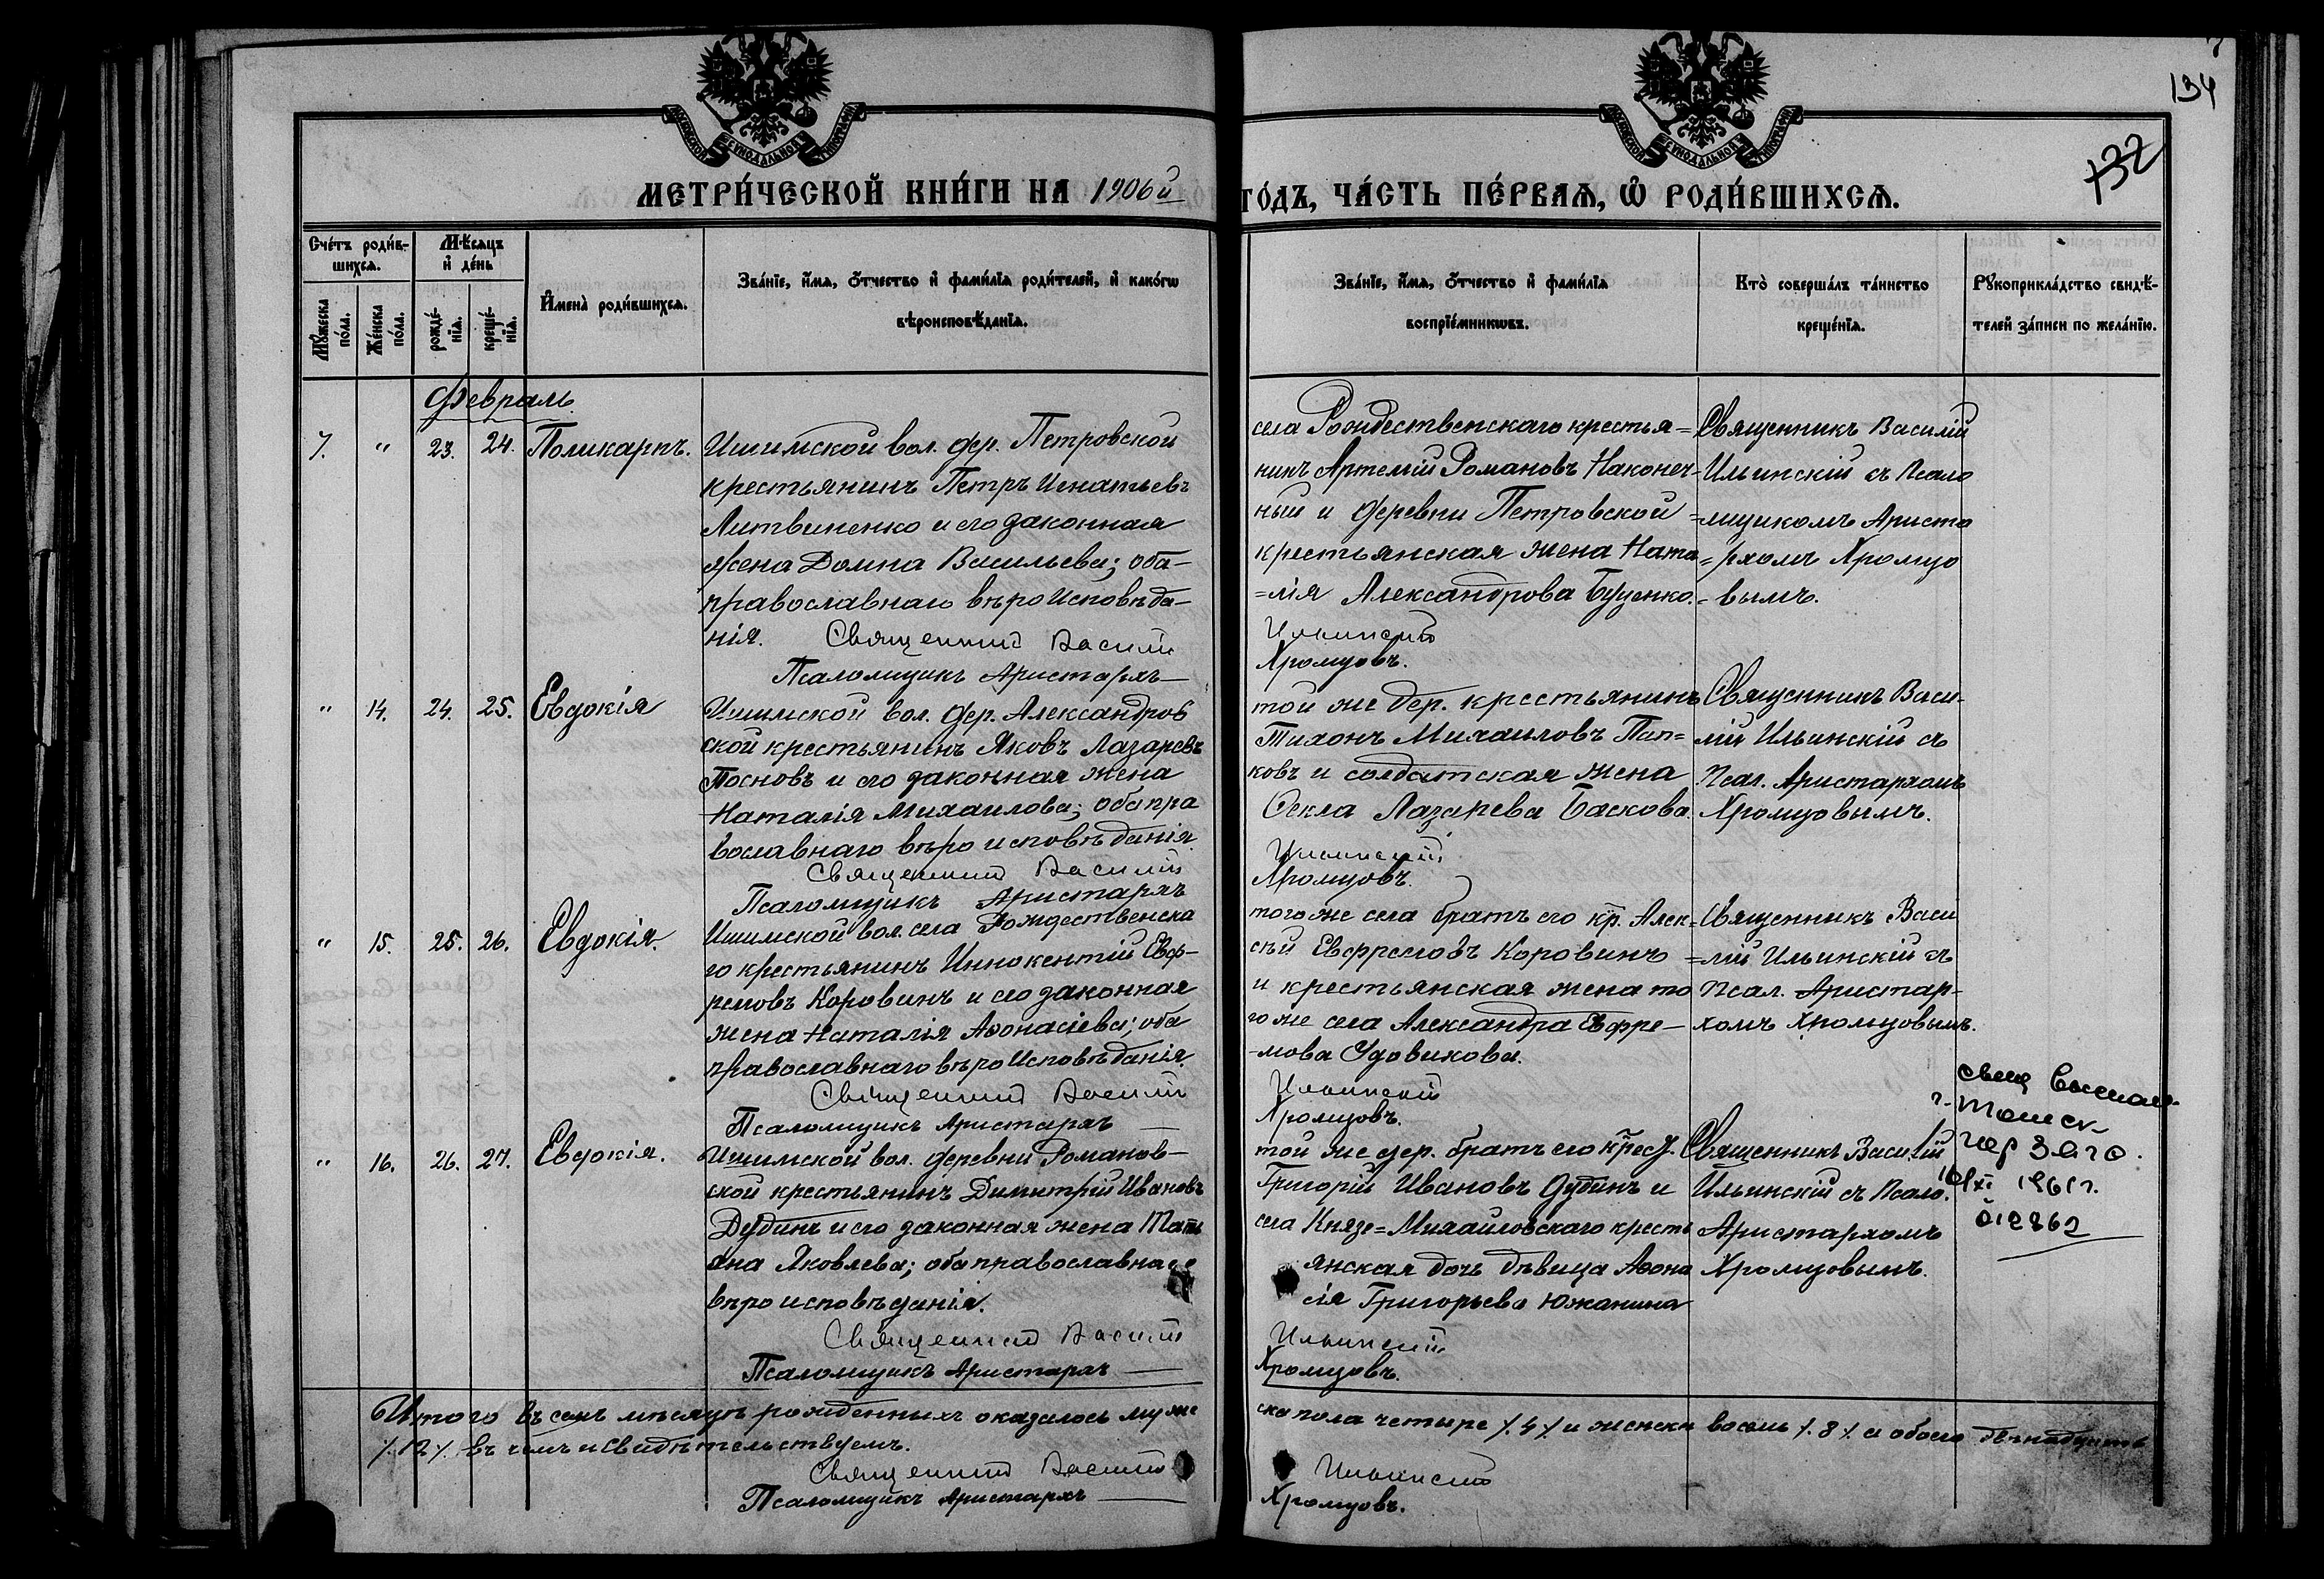 134
132
МЕТРИ́ЧЕСКОЙ КНИ́ГИ НА 1906й
ГО́ДЪ, ЧА́СТЬ ПЕ́РВАѦ, Ѡ РОДИ́ВШИХСѦ.
Сче́тъ роди́в-
шихсѧ.
Мѣ́сяцъ
и де́нь
Мꙋ́жеска по́ла.
Же́нска по́ла.
рожде́-нїѧ.
креще́-нїѧ.
И҆мена̀ роди́вшихсѧ.
Зва́нїе, и҆́мѧ, ѻ҆́тчество и҆ фами́лїѧ роди́телей, и҆ како́гѡ
вѣроисповѣ́данїѧ.
Зва́нїе, и҆́мѧ, ѻ҆́тчество и҆ фами́лїѧ
воспрїе́мникѡвъ.
Кто̀ соверша́лъ та́инство
креще́нїѧ.
Рꙋкоприкла́дство свидѣ́-
телей за́писи по жела́нїю.
Февраль.
7. " 23. 24. Поликарпъ.
Ишимской вол. дер. Петровской
крестьянинъ Петръ Игнатьевъ
Литвиненко и его законная
жена Домна Васильева; оба-
православнаго вѣроисповѣда-
нія. Священникъ Василій
Псаломщикъ Аристархъ —
села Рождественскаго крестья=
нинъ Артемій Романовъ Наконеч-
ный и деревни Петровской
крестьянская жена Ната
=лія Александрова Буценко.
Ильинскій
Хромцовъ.
Священникъ Василій
Ильинскій съ Псало
=мщикомъ Ариста
=рхомъ Хромцо
=вымъ.
" 14. 24. 25. Евдокія
Ишимской вол. дер. Александров
ской крестьянинъ Яковъ Лазаревъ
Посновъ и его законная жена
Наталія Михаилова; оба пра
вославнаго вѣроисповѣданія.
Священникъ Василій
Псаломщикъ Аристархъ
той же дер. крестьянинъ
Тихонъ Михаиловъ Поп=
ковъ и солдатская жена
Ѳекла Лазарева Баскова.
Ильинскій
Хромцовъ.
Священникъ Васи-
лій Ильинскій съ
Псал. Аристархомъ
Хромцовымъ.
" 15. 25. 26. Евдокія.
Ишимской вол. села Рождественска
го крестьянинъ Иннокентій Евф-
ремовъ Коровинъ и его законная
жена Наталія Аѳонасіева; оба
православнаго вѣроисповѣданія.
Священникъ Василій
Псаломщикъ Аристархъ —
того же села братъ его кр. Алек=
сѣй Евфремовъ Коровинъ
и крестьянская жена то
го же села Александра Евфре-
-мова Удовикова.
Ильинскій
Хромцовъ.
Священникъ Васи
=лій Ильинскій съ
Псал. Аристар-
хомъ Хромцовымъ.
" 16. 26. 27. Евдокія.
Ишимской вол. деревни Романов-
ской крестьянинъ Димитрій Ивановъ
Дубинъ и его законная жена Тать
яна Яковлева; оба православнаго
вѣроисповѣданія.
Священникъ Василій
Псаломщикъ Аристархъ —
той же дер. братъ его крест.
Григорій Ивановъ Дубинъ и
села Князе=Михайловскаго кресть
янская дочь дѣвица Аѳона
сія Григорьева Южанина
Ильинскій
Хромцовъ.
Священникъ Василій
Ильинскій съ Псало.
Аристархомъ
Хромцовымъ.
г. Томск
гор Загс.
1961г.
Итого въ семъ мѣсяцѣ рожденныхъ оказалось муже
ска пола четыре /.4./ и женска восемь /.8./ а обоего двѣнадцать
/.12./ въ чемъ и свидѣтельствуемъ.
Священникъ Василій Ильинскій
Псаломщикъ Аристархъ — Хромцовъ.